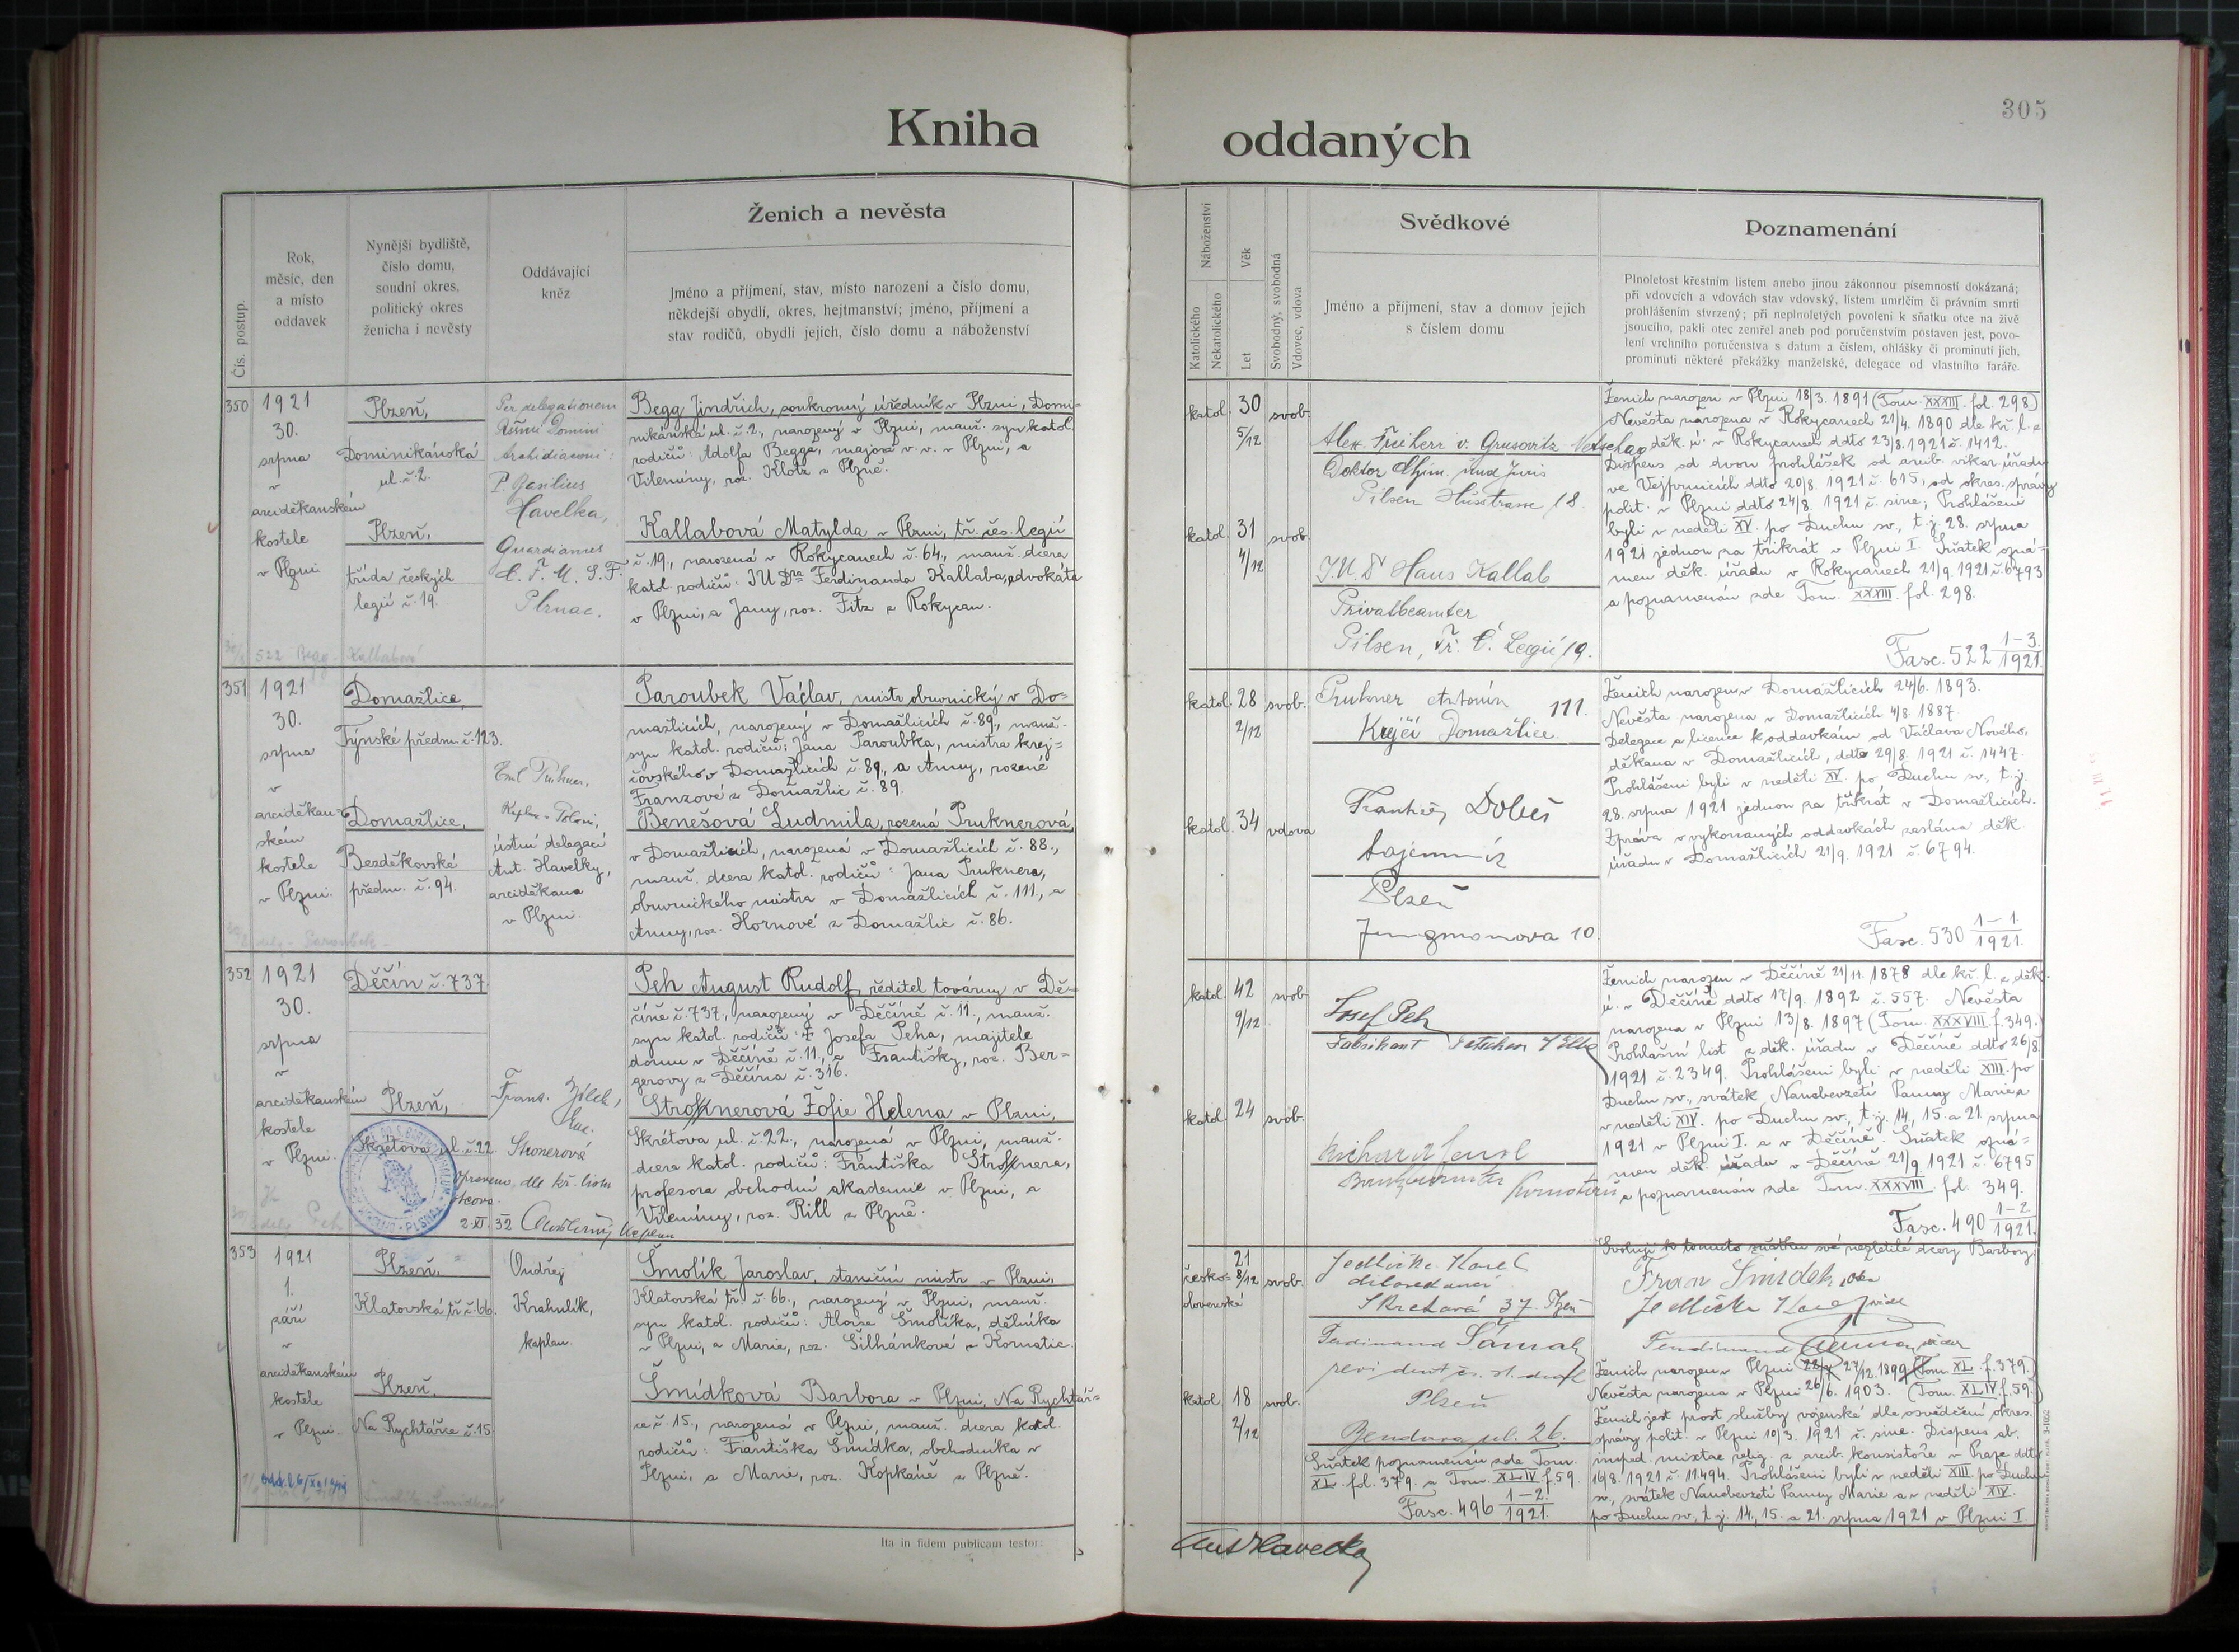 305
Kniha
oddaných
Čís. postup.
Rok,
měsíc, den
a místo
oddavek
Nynější bydliště,
číslo domu,
soudní okres,
politický okres
ženicha i nevěsty
Oddávající
kněz
Ženich a nevěsta
Jméno a příjmení, stav, místo narození a číslo domu,
někdejší obydlí, okres, hejtmanství; jméno, příjmení a
stav rodičů, obydlí jejich, číslo domu a náboženství
Náboženství
Katolického
Nekatolického
Věk
Let
Svobodný, svobodná
Vdovec, vdova
Svědkové
Jméno a příjmení, stav a domov jejich
s číslem domu
Poznamenání
Plnoletost křestním listem anebo jinou zákonnou písemností dokázaná;
při vdovcích a vdovách stav vdovský, listem úmrlčím či právním smrti
prohlášením stvrzený; při neplnoletých povolení k sňatku otce na živě
jsoucího, pakli otec zemřel aneb pod poručenstvím postaven jest, povo-
lení vrchního poručenstva s datum a číslem, ohlášky či prominutí jich,
prominutí některé překážky manželské, delegace od vlastního faráře.
350
1921
30.
srpna
v
arciděkanském
kostele
v Plzni
Plzeň,
Dominikánská
ul. č. 2.
Plzeň,
třída českých
legií č. 19.
Per delegationem
Domini
Archidiaconi:
P. Basilius
Havelka,
Guardianus
Begg Jindřich, soukromý úředník v Plzni, Domi-
nikánská ul. č. 2., narozený v Plzni, manž. syn katol.
rodičů: Adolfa Begga, majora v. v. v Plzni, a
Vilemíny, roz. Klotz z Plzně.
Kallabová Matylda v Plzni, tř. čes. legií
č. 19., narozená v Rokycanech č. 64., manž. dcera
katol. rodičů: JUDra Ferdinanda Kallaba, advokáta
v Plzni, a Jany, roz. Fitz z Rokycan.
katol. 30 5/12 svob.
katol. 31 4/12 svob.
Alex. Freiherr v.
Doktor
Pilsen Husstrasse 18.
J.U.Dr Hans Kallab
Privatbeamter
Pilsen, Tř. Č. Legií 19.
Ženich narozen v Plzni 18/3. 1891 (Tom. XXXIII. fol. 298)
Nevěsta narozena v Rokycanech 21/4. 1890 dle kř. l. z
děk. ú. v Rokycanech ddto 23/8. 1921 č. 1412.
Dispens od dvou prohlášek od arcib. vikar. úřadu
ve Vejprnicích ddto 20/8. 1921 č. 615, od okres. správy
polit. v Plzni ddto 24/8. 1921 č. sine; Prohlášeni
byli v neděli XV. po Duchu sv., t. j. 28. srpna
1921 jednou za třikrát v Plzni I. Sňatek ozná-
men děk. úřadu v Rokycanech 21/9. 1921 č. 6793
a poznamenán zde Tom. XXXIII. fol. 298.
Fasc. 522 1-3/1921.
351
1921
30.
srpna
v
arciděkan-
ském
kostele
v Plzni.
Domažlice,
Týnské předm. č. 123.
Domažlice,
Bezděkovské
předm. č. 94.
ústní delegací
Ant. Havelky,
arciděkana
v Plzni.
Paroubek Václav, mistr obuvnický v Do-
mažlicích, narozený v Domažlicích č. 89., manž.
syn katol. rodičů: Jana Paroubka, mistra krej-
čovského v Domažlicích č. 89., a Anny, rozené
Franzové z Domažlic č. 89.
Benešová Ludmila, rozená Pruknerová,
v Domažlicích, narozená v Domažlicích č. 88.,
manž. dcera katol. rodičů: Jana Pruknera,
obuvnického mistra v Domažlicích č. 111., a
Anny, roz. Hornové z Domažlic č. 86.
katol. 28 2/12 svob.
katol. 34 vdova
Prukner Antonín 111.
Krejčí Domažlice
František Dobeš
tajemník
Plzeň
Jungmanova 10.
Ženich narozen v Domažlicích 24/6. 1893.
Nevěsta narozena v Domažlicích 4/8. 1887
Delegace a licence k oddavkám od Václava Nového,
děkana v Domažlicích, ddto 29/8. 1921 č. 1447.
Prohlášeni byli v neděli XV. po Duchu sv., t. j.
28. srpna 1921 jednou za třikrát v Domažlicích.
Zpráva o vykonaných oddavkách zaslána děk.
úřadu v Domažlicích 21/9. 1921 č. 6794.
Fasc. 530 1-1/1921.
352
1921
30.
srpna
v
arciděkanském
kostele
v Plzni.
Děčín č. 737.
Plzeň,
Škrétova ul. č. 22.
Stronerová
opraveno dle kř. listu
otcova.
2. XI. 32
Peh August Rudolf, ředitel továrny v Dě-
číně č. 737., narozený v Děčíně č. 11., manž.
syn katol. rodičů: † Josefa Peha, majitele
domu v Děčíně č. 11., a Františky, roz. Ber-
gerovy z Děčína č. 316.
Strossnerová Žofie Helena v Plzni,
Škrétova ul. č. 22., narozená v Plzni, manž.
dcera katol. rodičů: Františka Strossnera,
profesora obchodní akademie v Plzni, a
Vilemíny, roz. Rill z Plzně.
katol. 42 9/12 svob.
katol. 24 svob.
Josef Peh
Fabrikant Tetschen a/Elbe
Ženich narozen v Děčíně 21/11. 1878 dle kř. l. z děk.
ú. v Děčíně ddto 17/9. 1892 č. 557. Nevěsta
narozena v Plzni 13/8. 1897 (Tom. XXXVIII. f. 349.)
Prohlašní list z děk. úřadu v Děčíně ddto 26/8
1921 č. 2349. Prohlášeni byli v neděli XIII. po
Duchu sv., svátek Nanebevzetí Panny Marie a
v neděli XIV. po Duchu sv., t. j. 14., 15. a 21. srpna
1921 v Plzni I. a v Děčíně. Sňatek ozná-
men děk. úřadu v Děčíně 21/9. 1921 č. 6795
a poznamenán zde Tom. XXXVIII. fol. 349.
Fasc. 490 1-2/1921.
353
1921
1.
září
v
arciděkanském
kostele
v Plzni.
Plzeň,
Klatovská tř. č. 66.
Plzeň,
Na Rychtářce č. 15
Ondřej
Krahulík,
kaplan.
Šmolík Jaroslav, staniční mistr v Plzni,
Klatovská tř. č. 66., narozený v Plzni, manž.
syn katol. rodičů: Aloise Šmolíka, dělníka
v Plzni, a Marie, roz. Šilhánkové z Komatic.
Šmídková Barbora v Plzni, Na Rychtář-
ce č. 15., narozená v Plzni, manž. dcera katol.
rodičů: Františka Šmídka, obchodníka v
Plzni, a Marie, roz. Kopkáně z Plzně.
česko-
slovenské
21 8/12 svob.
katol. 18 2/12 svob.
Jedlička Karel
Škretová 37. Plzeň
Ferdinand
Plzeň
ul. 26.
Sňatek poznamenán zde Tom.
XL. fol. 379. a Tom. XLIV f. 59.
Fasc. 496 1-2./1921.
Svoluji k tomuto sňatku své nezletilé dcery Barbory:
Fran Šmídek, otec
Jedlička Karel
Ferdinand
Ženich narozen v Plzni 27/12. 1899 (Tom. XL. f. 379.)
Nevěsta narozena v Plzni 26/6. 1903. (Tom. XLIV. f. 59.)
Ženich jest prost služby vojenské dle osvědčení okres.
správy polit. v Plzni 10/3. 1921 č. sine. Dispens ab.
imped. mixtae relig. z arcib. konsistoře v Praze ddto
16/8. 1921 č. 11494. Prohlášeni byli v neděli XIII. po Duchu
sv., svátek Nanebevzetí Panny Marie a v neděli XIV.
po Duchu sv., t. j. 14., 15. a 21. srpna 1921 v Plzni I.
Ita in fidem publicam testor:
Ant Havelka